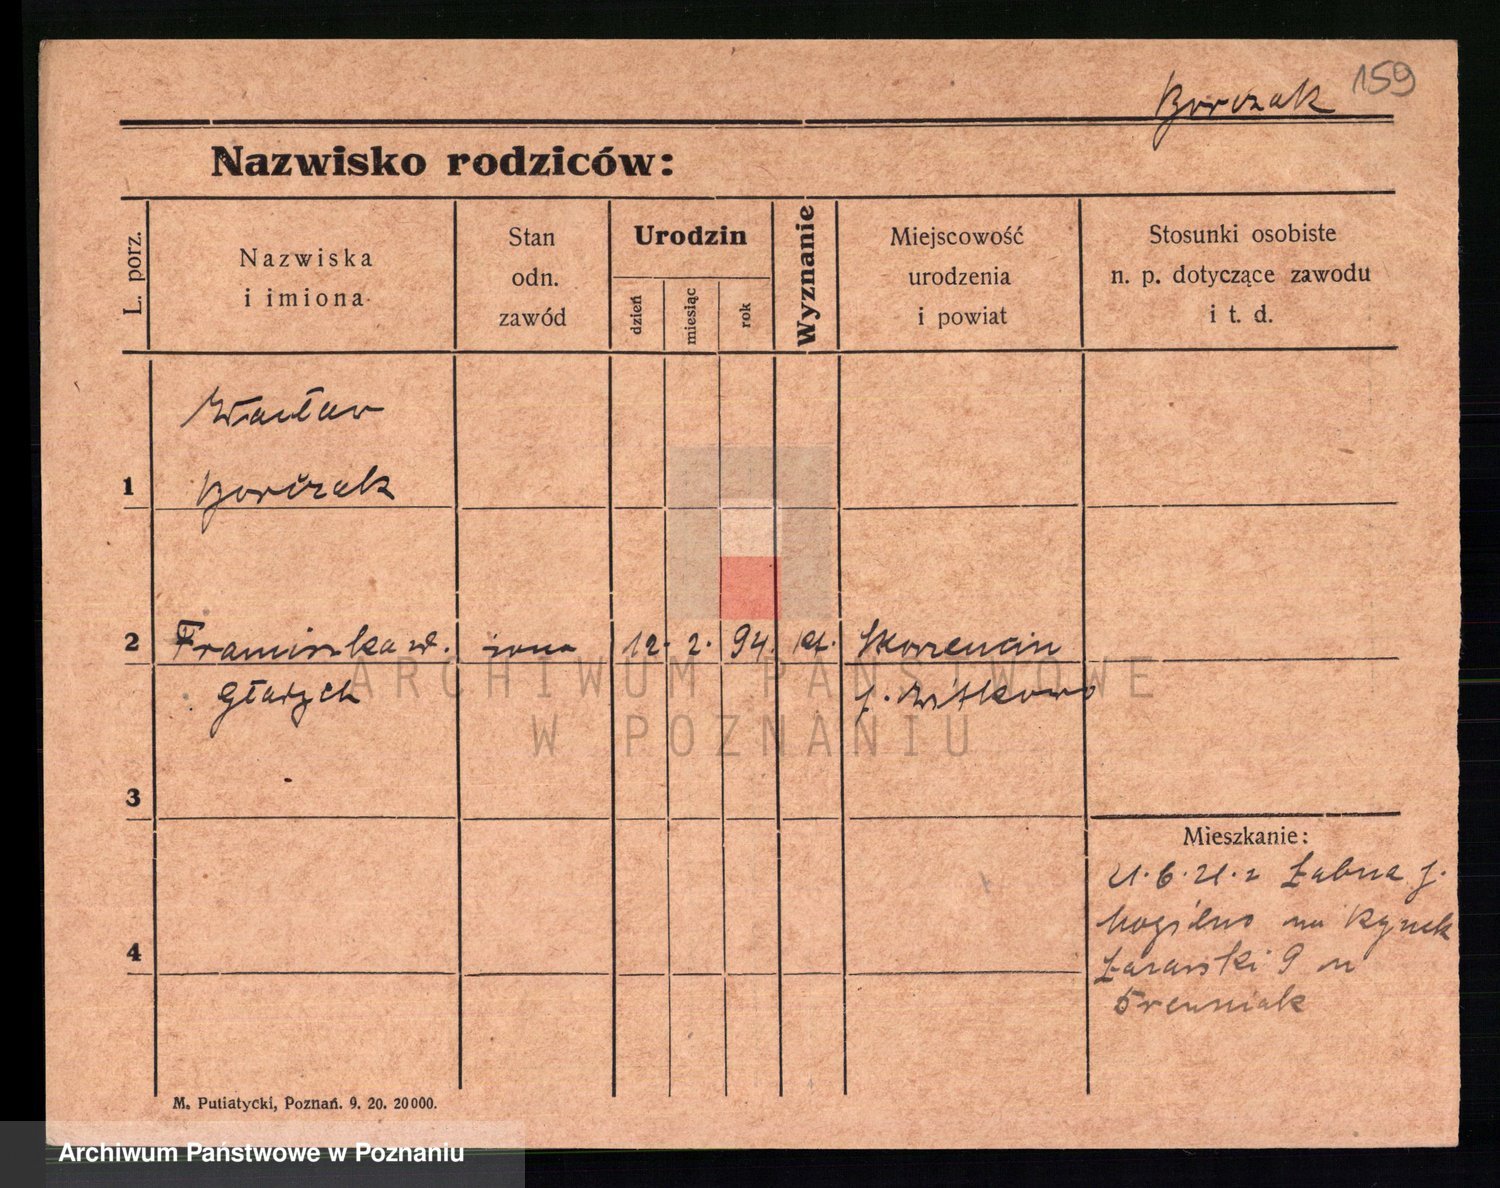 159
Borczak
Nazwisko rodziców:
L. porz.
Nazwiska
i imiona
Stan
odn.
zawód
Urodzin
dzień
miesiąc
rok
Wyznanie
Miejscowość
urodzenia
i powiat
Stosunki osobiste
n. p. dotyczące zawodu
i t. d.
Wacław
1 Borczak
2 Franciszka żona 12. 2. 94. kt.
3
Mieszkanie:
Łabna
Mogilno na Rynek
4
9
M. Putiatycki, Poznań. 9. 20. 20000.
ARCHIWUM PAŃSTWOWE
W POZNANIU
Archiwum Państwowe w Poznaniu